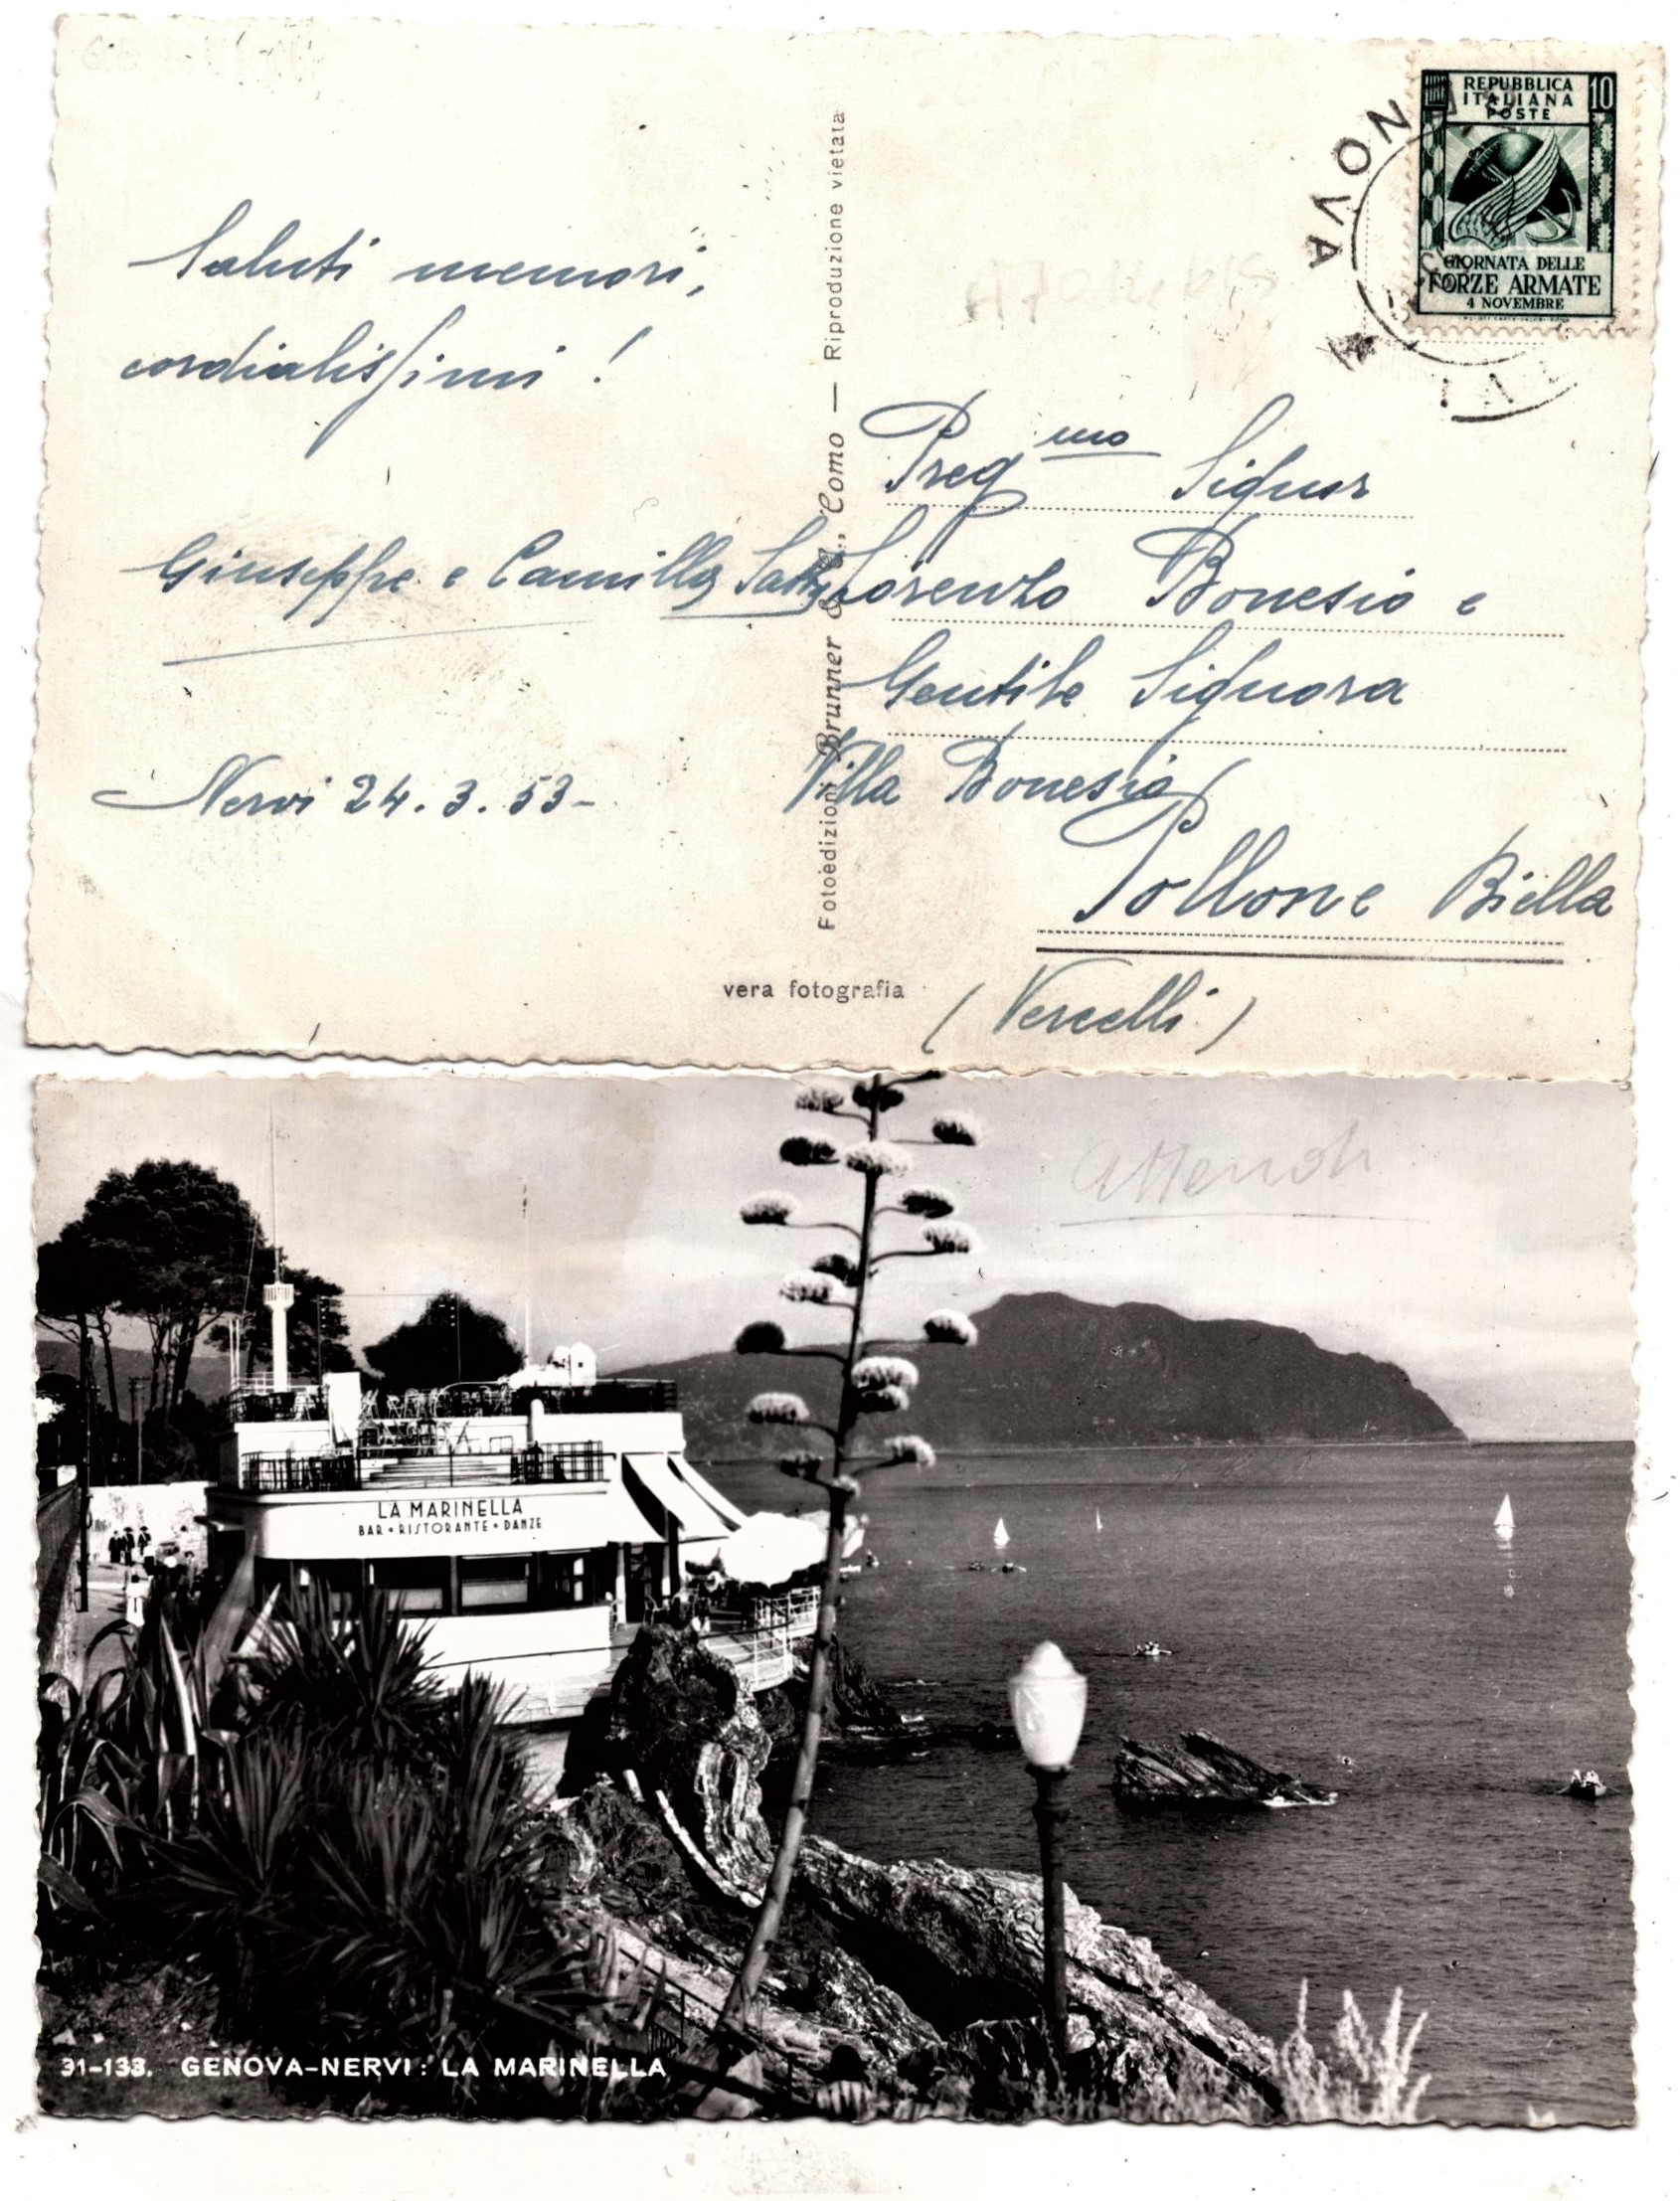 Saluti memori,
cordialissimi !
Giuseppe e Camilla
Nervi 24.3.53-
Fotoedizioni Brunner & C., Como — Riproduzione vietata
vera fotografia
NOVA
REPUBBLICA
ITALIANA
POSTE
10
GIORNATA DELLE
FORZE ARMATE
4 NOVEMBRE
Preg mo Signor
Lorenzo Bonesio e
Gentile Signora
Villa Bonesio
Pollone Biella
(Vercelli)
LA MARINELLA
BAR • RISTORANTE • DANZE
31-133. GENOVA-NERVI: LA MARINELLA